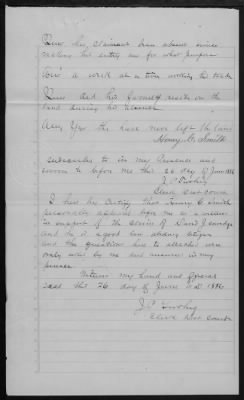 Ques Has Claimant been absent since
making his entry and for what purpose
Ans a week at a time working his trade
Ques did his family reside on the
land during his absence
Ans Yes they have never left the land
Henry C. Smith
Subscribed to in my Presence and
sworn to before me this 26 day of June 1886
Clerk Dist Court
I hereby Certify that Henry C Smith
personally appeared before me as a witness
in support of the claim of David J
and he is a good law abiding citizen
and the questions hereto attached were
only asked by me and answered in my
presence
Witness my hand and official
seal this 26 day of June AD 1886
Clerk Dist Court